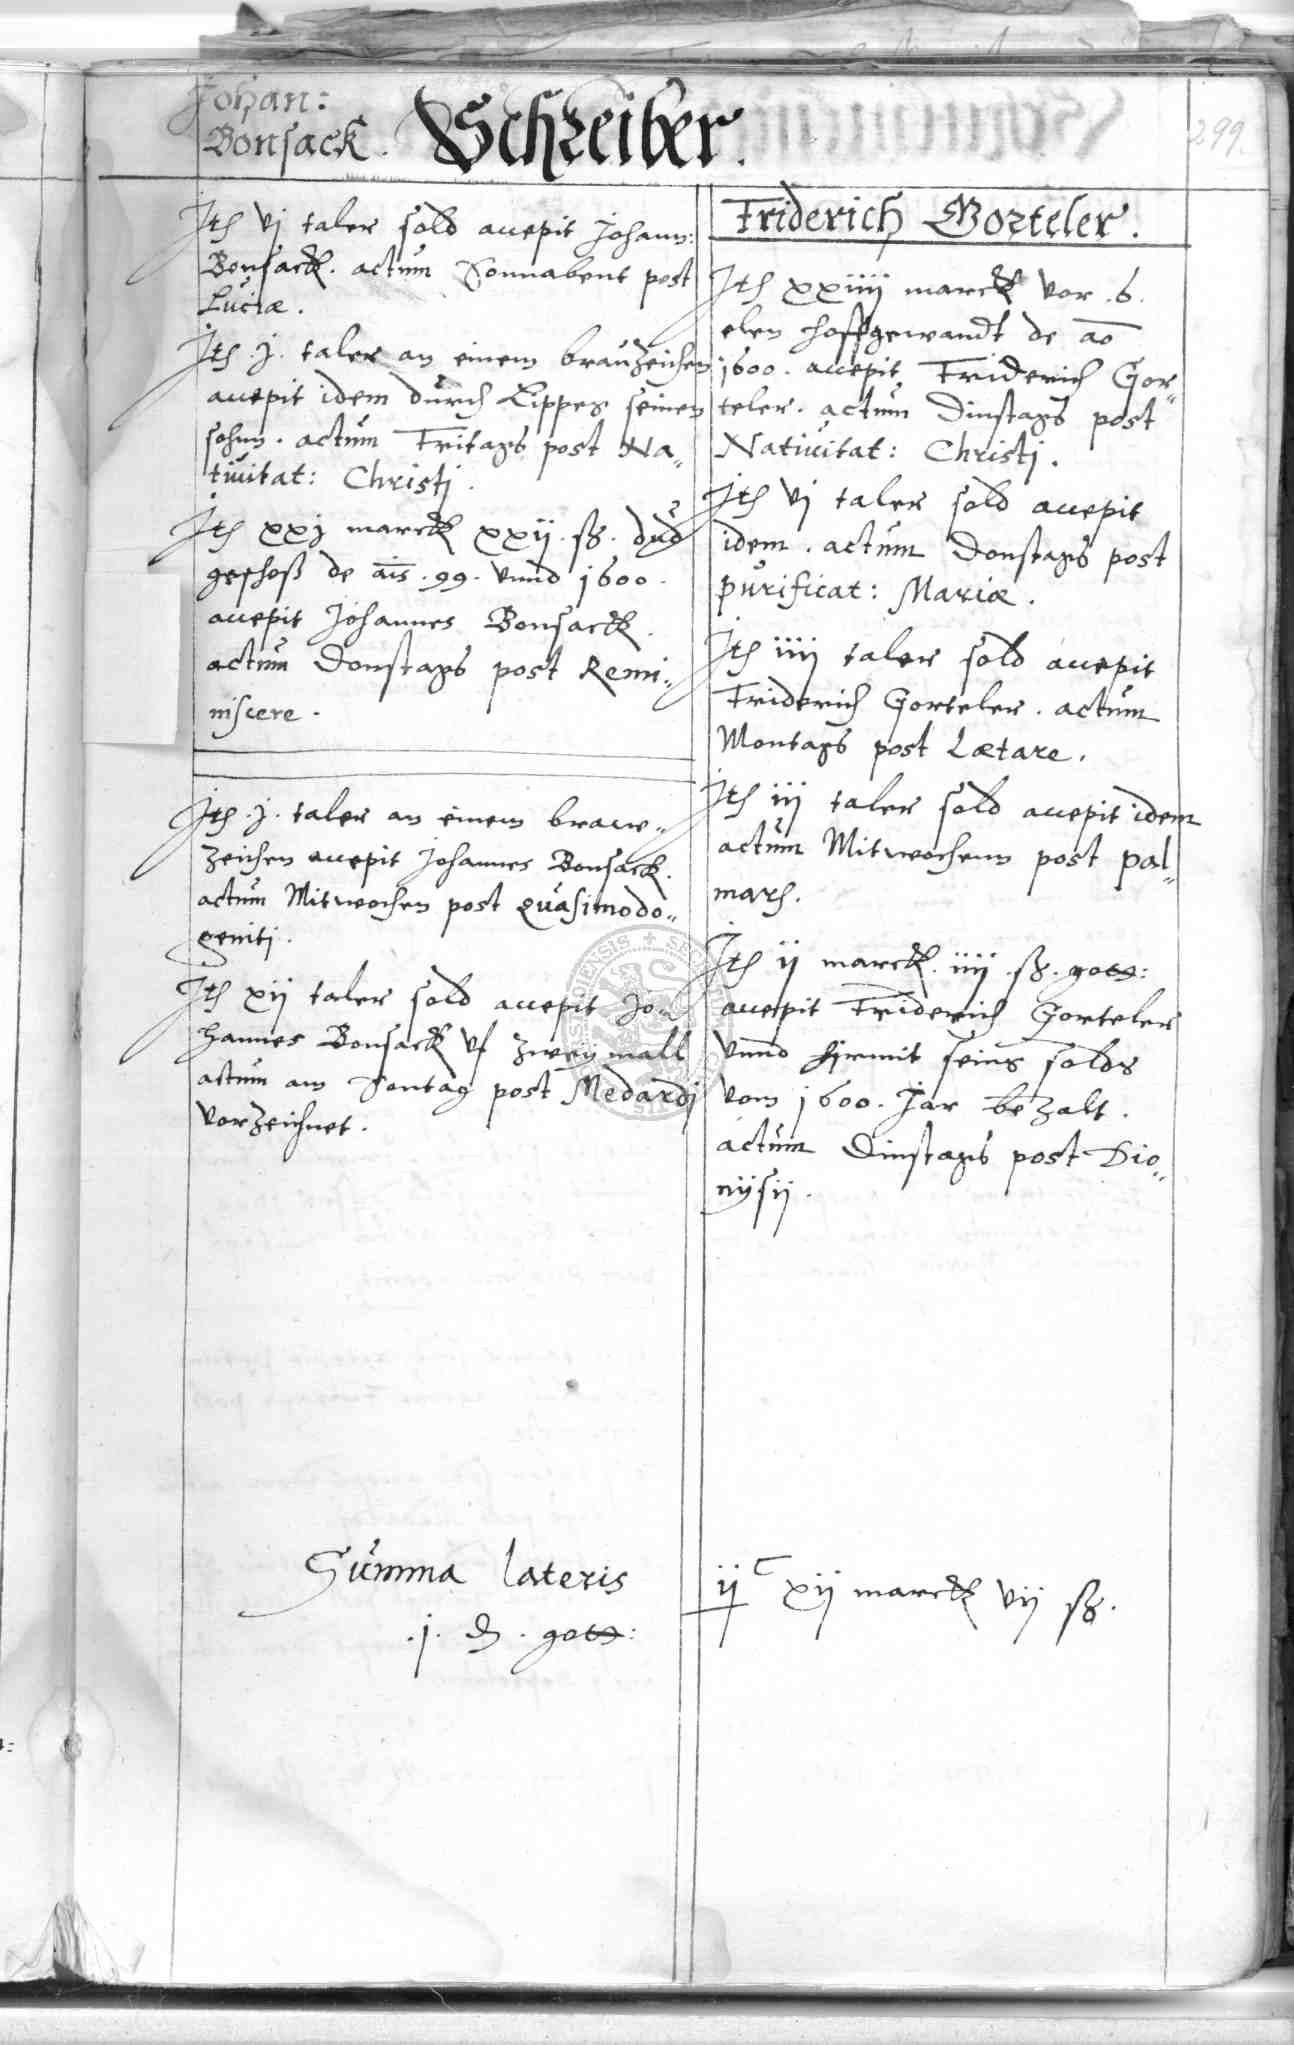 Johan:
Bonsack. Schreiber.
299.
Jth vj taler sold accepit Johann:
Bonsack. actum Sonnabent post
Luciæ.
Jth .j. taler an einem brauzeichen
accepit idem durch Lippes seinen
sohnn. actum Fritags post Na„
tivitat: Christj.
Jth xxj marck xxij. ß. dud
geschoß de ais .99. vnnd 1600.
accepit Johannes Bonsack.
actum Donstags post Remi„
niscere.
Jth .j. taler an einem brauw„
zeichen accepit Johannes Bonsack.
actum Mitwochen post Quasimodo„
genitj.
Jth xij taler sold accepit Jo„
hannes Bonsack vf zweij mall
actum am Sontag post Medardj
vorzeichnet.
Friderich Gorteler.
Jth xxiiij marck vor .6.
elen hoffgewandt de ao
1600. accepit Friderich Gor„
teler. actum Dinstags post
Nativitat: Christj.
Jth vj taler sold accepit
idem. actum Donstags post
purificat: Mariæ.
Jth iiij taler sold accepit
Friderich Gorteler. actum
Montags post Lætare.
Jth iij taler sold accepit idem
actum Mitwochenn post pal„
marh.
Jth ij marck. iiij. ß. gots:
accepit Friderich Gorteler
vnnd hirmit seins solds
vom 1600. Jar bezalt.
actum Dinstags post Dio„
nijsij.
Summa lateris ij C xij marck vij ß.
.j. ₰. gots: